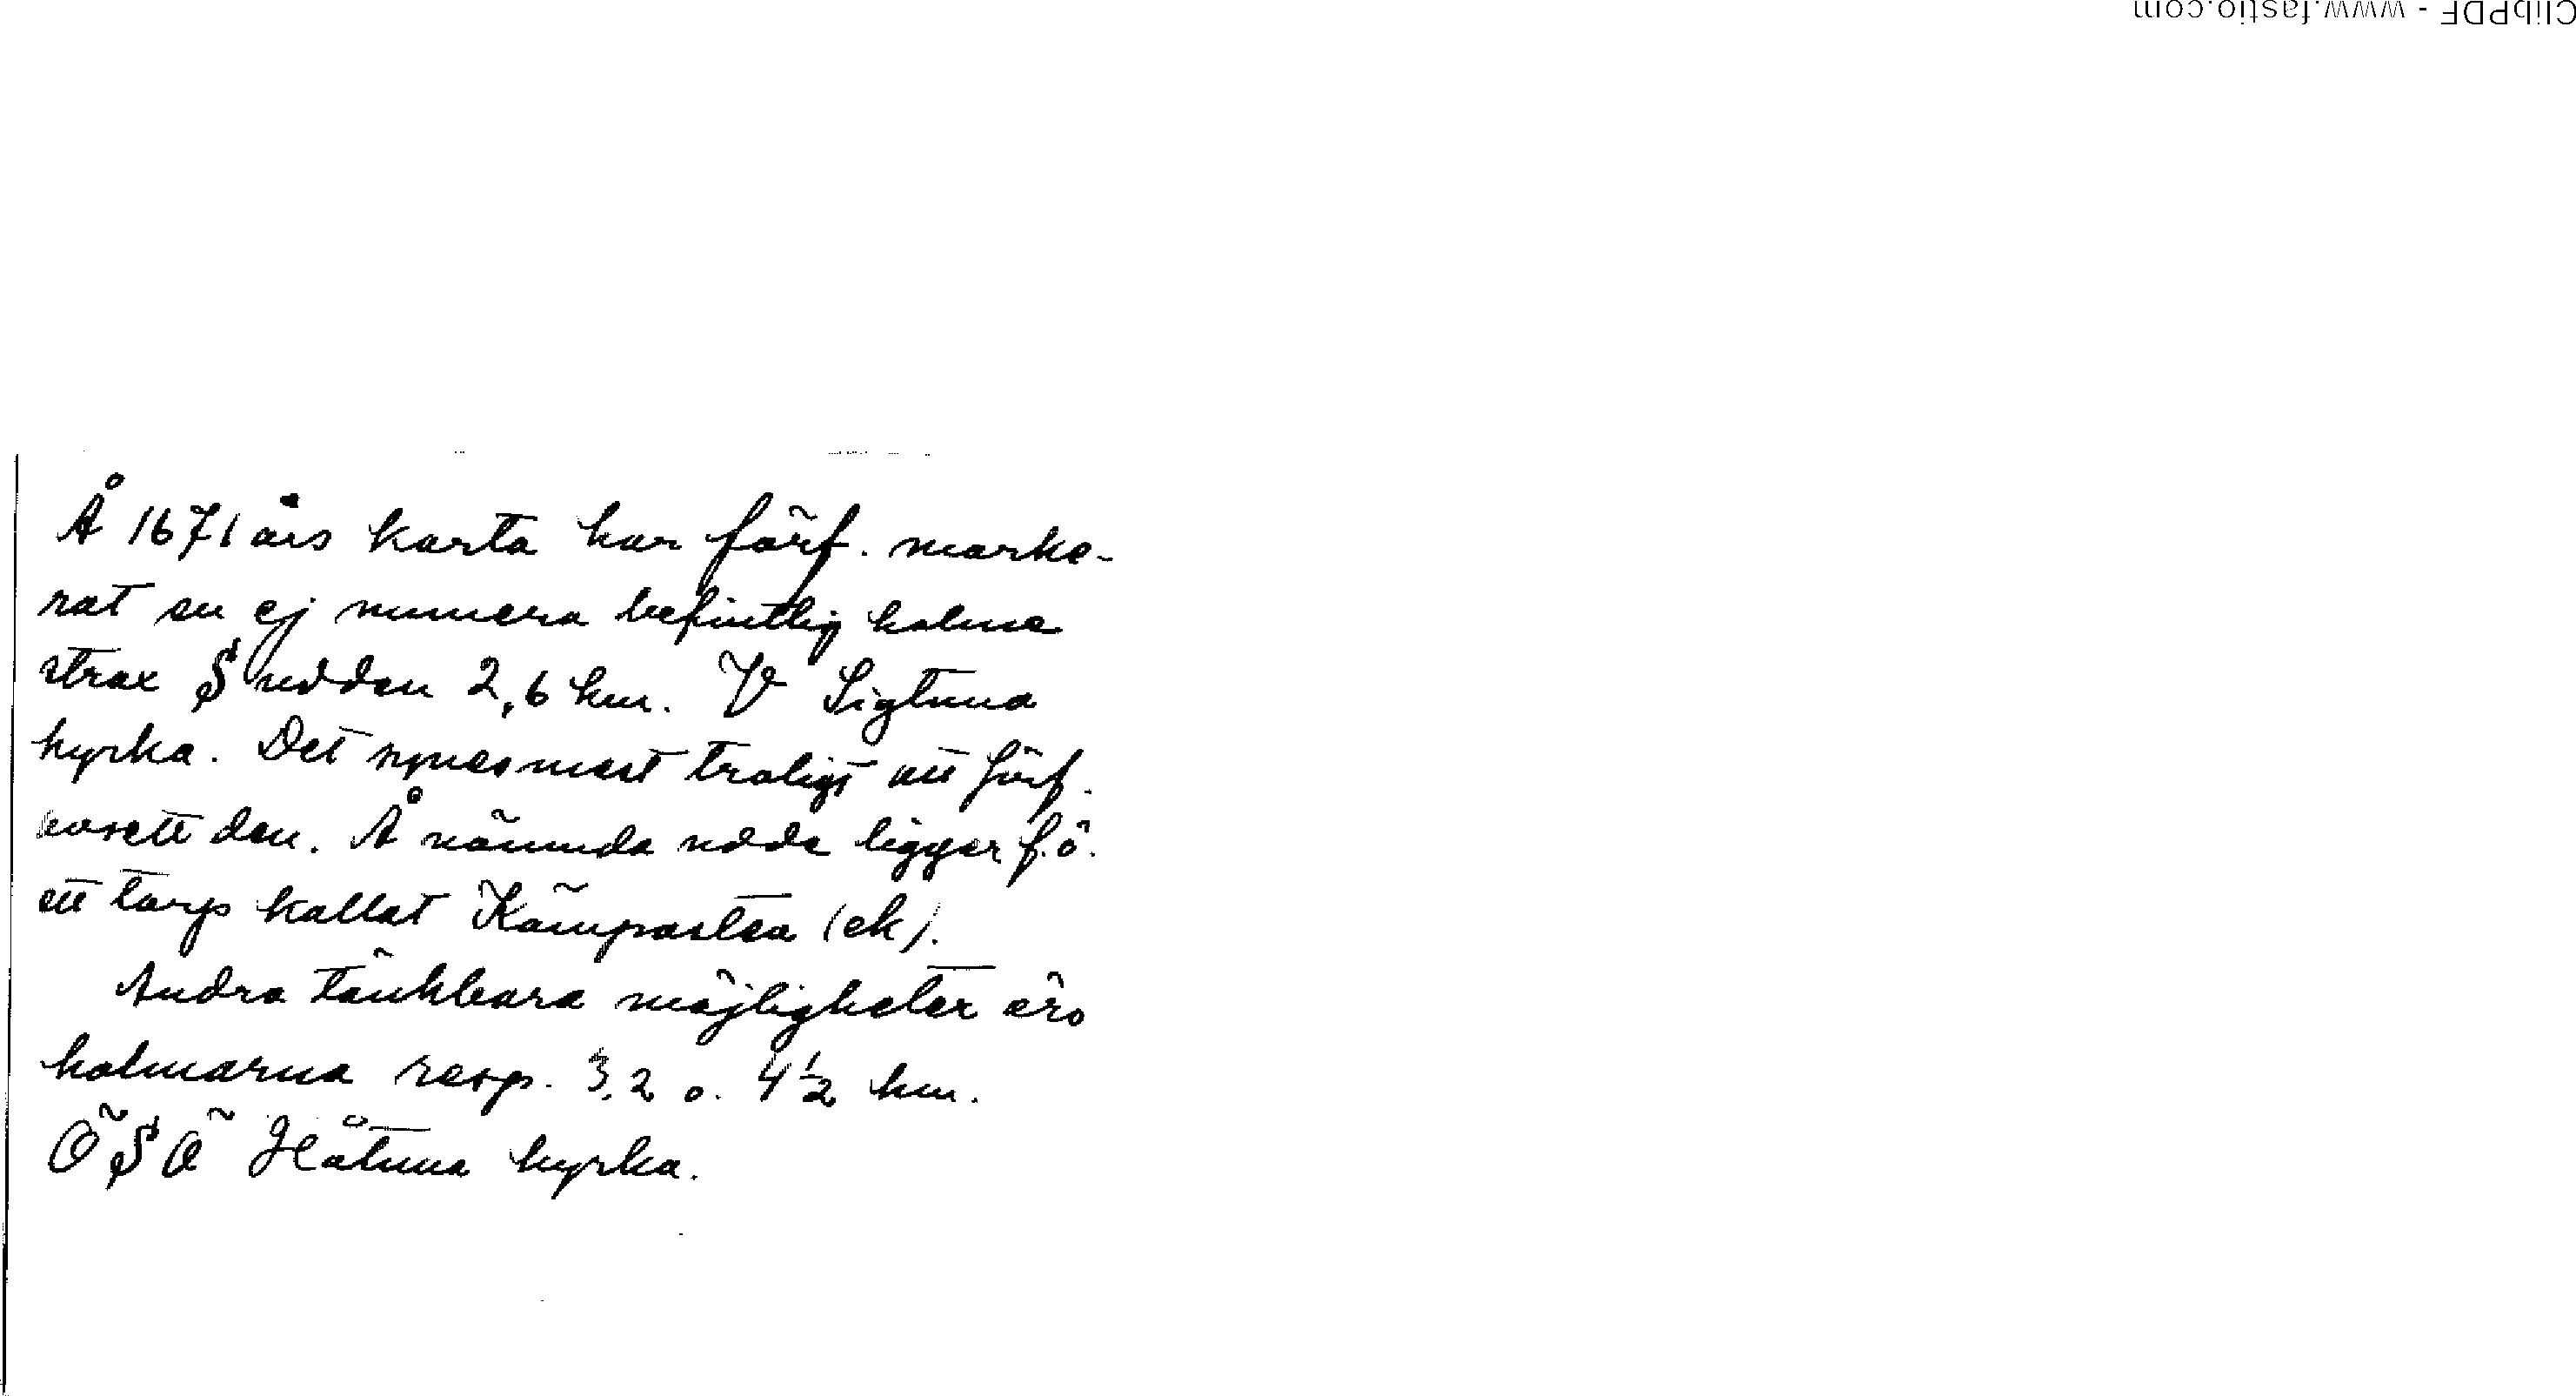 ClibPDF - www.fastio.com
Å 1671 års karta har förf. marke-
rat en ej numera befintlig holme
strax S udden 2,6 km. V Sigtuna
kyrka. Det synes mest troligt att förf.
avsett den. Å nämnda udde ligger f.ö.
ett torp kallat Kämpasten (ek).
Andra tänkbara möjligheter äro
holmarna resp. 3,2 o. 4½ km.
ÖSÖ Håtuna kyrka.